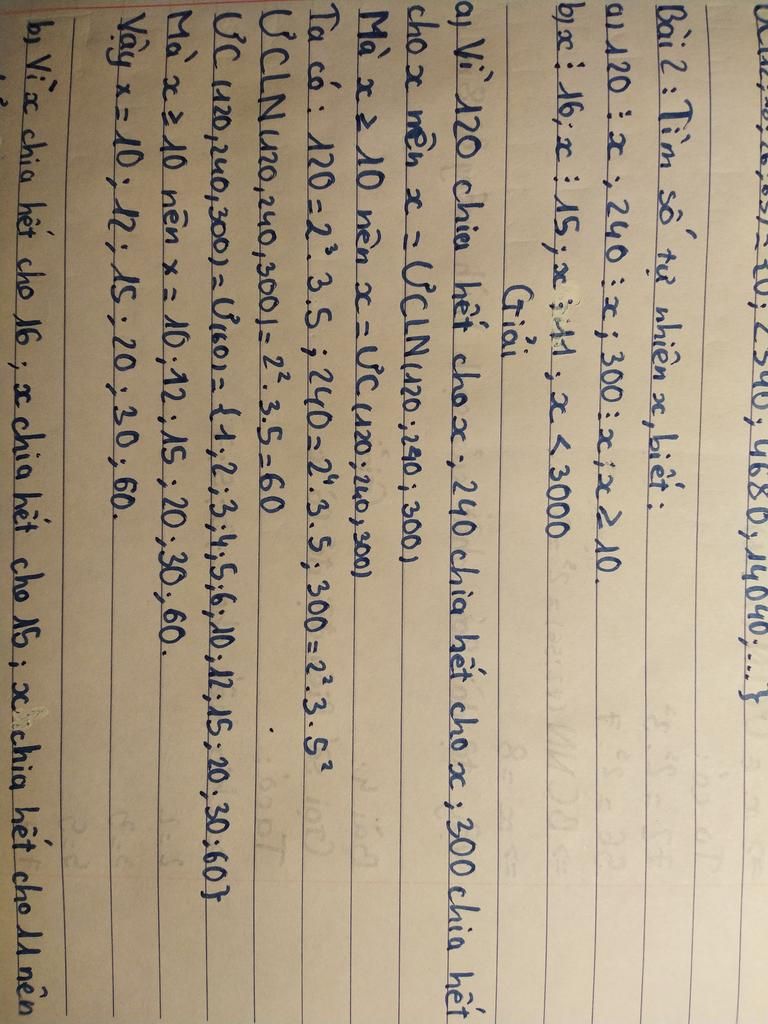 2340; 4680; 14040;...}
Bài 2: Tìm số tự nhiên x, biết:
a) 120 ⋮ x; 240 ⋮ x; 300 ⋮ x; x ≥ 10.
b) x ⋮ 16; x ⋮ 15; x ⋮ 11; x < 3000
Giải
a) Vì 120 chia hết cho x; 240 chia hết cho x; 300 chia hết
cho x nên x = ƯCLN(120; 240; 300)
Mà x ≥ 10 nên x = ƯC(120; 240, 300)
Ta có: 120 = 2³.3.5; 240 = 2⁴.3.5; 300 = 2².3.5²
ƯCLN(120, 240, 300) = 2².3.5 = 60
ƯC(120, 240, 300) = Ư(60) = {1; 2; 3; 4; 5; 6; 10; 12; 15; 20; 30; 60}
Mà x ≥ 10 nên x = 10; 12; 15; 20; 30; 60.
Vậy x = 10; 12; 15; 20; 30; 60.
b) Vì x chia hết cho 16; x chia hết cho 15; x chia hết cho 11 nên